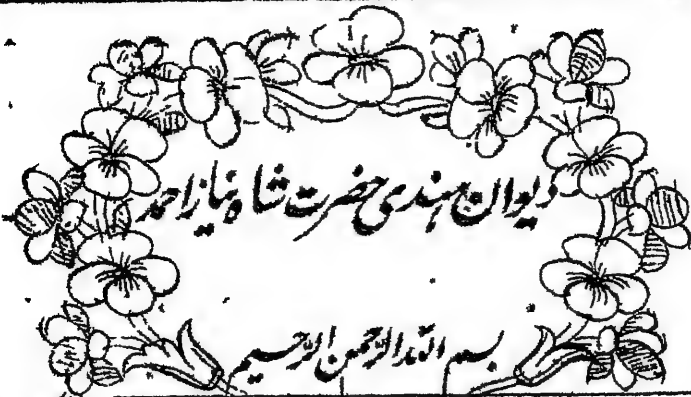 دیوان ہندی حضرت شاہ نیاز احمد
بسم اللہ الرحمن الرحیم